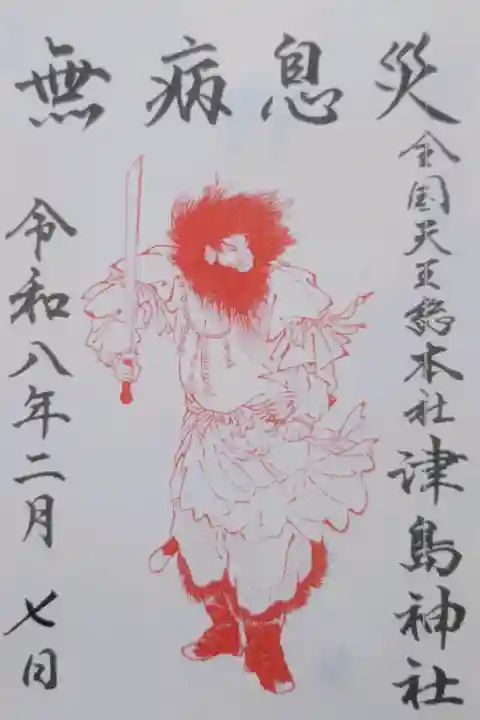 無病息災
全国天王総本社 津島神社
令和八年二月 七日